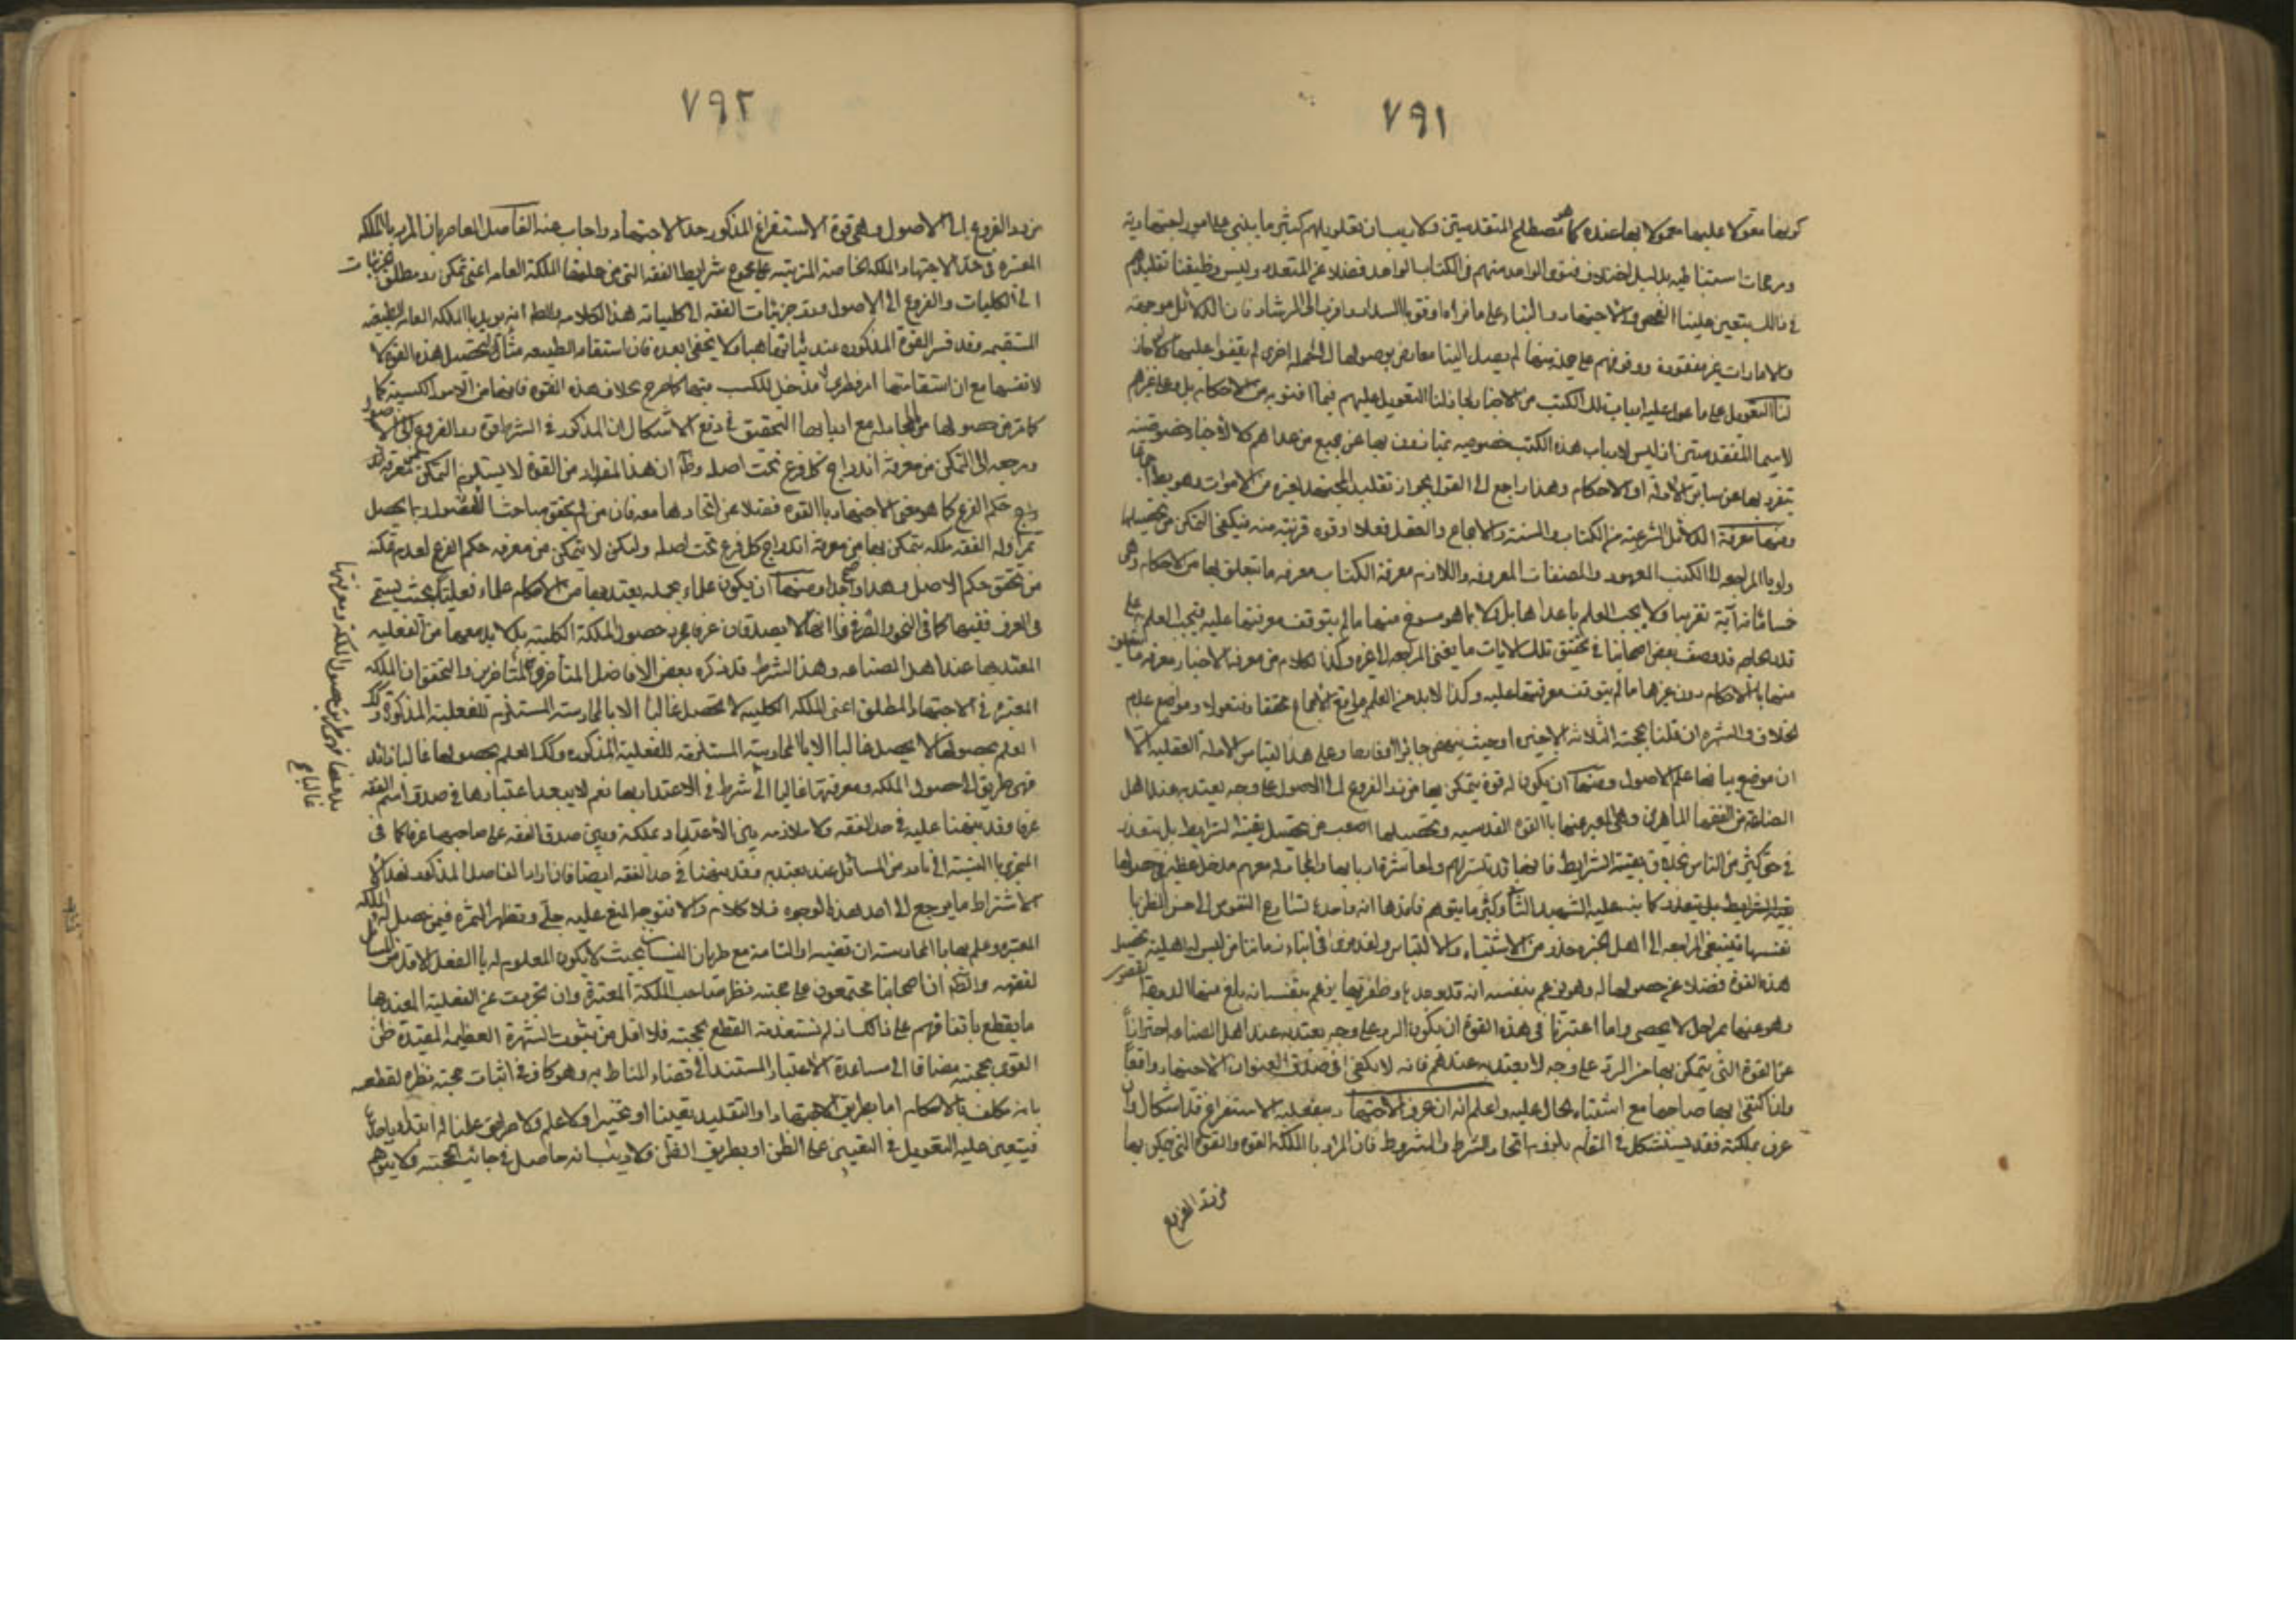 ٧٩١
كونها معولا عليها معمولا بها عنده كما هو مصطلح المتقدمين ولا ريب ان تعليلهم كثير ما يبني على امور اجتهادية
ومرجحات استنباطيه بدليل اختلاف فتوى الواحد منهم في الكتاب الواحد فضلا عن المتعدد وليس وظيفتنا تقليدهم
في ذلك بل يتعين علينا الفحص والاجتهاد والبناء على ما نراه اوفق بالسداد واقرب الى الرشاد فان الدلائل موجودة
والامارات غير مفقودة ووقوفهم على جملة منها لم يصل الينا معارض بوصولها الى جملة اخرى لم يقفوا عليها ولو جاز
لنا التعويل على ما عول عليه ارباب تلك الكتب من الاخبار لجاز لنا التعويل عليهم فيما افتوا به من الاحكام بل وعلى غيرهم
لا سيما المتقدمين اذ ليس لارباب هذه الكتب خصوصيه يمتازون بها عن جميع من عداهم كلا ولا خبار خصوصية
تنفرد بها عن سائر الادلة او الاحكام وهذا راجع الى القول بجواز تقليد المجتهد لغيره من الاموات وهو بط
ومنها معرفة الدلائل الشرعية من الكتاب والسنة والاجماع والعقل فعلا او قوه قريبه منه فيكفي التمكن من تحصيلها
ولو بالمراجعه الى الكتب المعهود والمصنفات المعروفه واللازم معرفة الكتاب معرفه ما يتعلق بها من الاحكام وهي
خمسمائة آية تقريبا ولا يجب العلم بما عداها بل ولا بما هو منسوخ منها ما لم يتوقف معرفتها عليه فيجب العلم
قدر الحاجه قد وصف بعض اصحابنا في تحقيق تلك الايات ما يغني المراجعه الى غيره وكذا الكلام من معرفة الاخبار معرفه ما يتعلق
منها بالاحكام دون غيرها ما لم يتوقف معرفتها عليه وكذا لا بد من العلم بمواقع الاجماع محققا ومنقولا ومواضع عدم
الخلاف والشهره ان قلنا بحجية الثلاثة الاخيره او حيث ينهض جابرا او عاضدا وعلى هذا القياس الادلة العقلية الا
ان موضع بيانها علم الاصول ومنها ان يكون له قوة يتمكن بها من رد الفروع الى الاصول على وجه يعتد به عند اهل
الصناعة من الفقها الماهرين وهي المعبر عنها بالقوه القدسيه وتحصيلها اصعب من تحصيل بقية الشرايط بل يتعذر
في حق كثير من الناس بخلاف بقية الشرايط فانها قد تتيسر لهم ولمعاشرة اربابها والمجادله معهم مدخل عظيم في حصولها
بقية الشرايط بل يتعذر كما نبه عليه الشهيد الثاني وكثير ما يتوهم فاقدها انه واجدها لتسارع النفوس الى حسن الظن با
نفسها فينبغي المراجعه الى اهل الخبره حذرا من الاشتباه والالتباس ولقد نرى في ابناء زماننا من ليس له اهلية تحصيل
هذه القوة فضلا عن حصولها له وهو يزعم بنفسه انه قد وجدها وظفر بها يزعم بنفسه انه بلغ منها الدرجة القصوى
وهو عنها بمراحل لا يحصى وانما اعتبرنا في هذه القوة ان يكون الرد على وجه يعتد به عند اهل الصناعه احترازا
عن القوة التي يتمكن بها من الرد على وجه لا يعتد به عندهم فانه لا يكفي في صدق العنوان الاجتهاد واقعا
وان اكتفى بها صاحبها مع اشتباه الحال عليه واعلم انه ان عرف الاجتهاد بفعلية الاستفراغ فلا اشكال وان
عرف بملكته فقد يستشكل في المقام بلزوم اتحاد الشرط والمشروط فان المراد بالملكة القوه والقوة التي يمكن بها
من رد الفروع
٧٩٢
من رد الفروع الى الاصول وهي قوة الاستفراغ المذكور حد الاجتهاد واجاب عنه الفاضل المعاصر بان المراد بالملكه
المعتبره في حد الاجتهاد الملكه الخاصة المترتبه على مجموع شرايط الفقه التي من جملتها الملكة العامه اعني تمكن رد مطلق الجزئيات
الى الكليات والفروع الى الاصول ورد جزئيات الفقه الى كلياته هذا كلامه والظ انه يريد بالملكه العامه الطبيعه
المستقيمه وقد فسر القوة المذكوره عند بيانها بها ولا يخفى بعده فان استقامة الطبيعه منشأ لتحصيل هذه القوة لا
لا نفسها مع ان استقامتها امر فطري لا مدخل للكسب فيها كما صرح بخلاف هذه القوه فانها من الامور الكسبية كما
كما مر من حصولها من المجادله مع اربابها التحقيق في دفع الاشكال ان المذكور في الشرط قوة رد الفروع الى الاصول
ومرجعه الى التمكن من معرفة اندراج كل فرع تحت اصله وظ ان هذا المقدار من القوة لا يستلزم التمكن من معرفة
حكم الفرع كما هو معنى الاجتهاد بالقوه فضلا عن اتحادها معه فان من لم يحقق مباحث الاصول ربما يحصل
من مزاوله الفقه ملكه يتمكن بها من معرفة اندراج كل فرع تحت اصله ولكن لا يتمكن من معرفه حكم الفرع لعدم تمكنه
من تحقق حكم الاصل وهذا واضح ومنها ان يكون علماء بجمله يعتد بها من الاحكام علماء فعليا بحيث يسمى
في العرف فقيها كما في النحو والصرف فانهما لا يصدقان عرفا بمجرد حصول الملكة الكلية بل لا بد معها من الفعليه
المعتد بها عند اهل الصناعه وهذا الشرط قد ذكره بعض الافاضل المتأخرين والتحقق ان الملكه
المعتبره في الاجتهاد المطلق اعني الملكه الكليه لا تحصل غالبا الا بالممارسته المستلزم للفعليه المذكوره وكذ
العلم بحصولها لا يحصل غالبا الا بالممارسة المستلزمه للفعلية المذكوره وكذا العلم بحصولها غالبا فاذن
فهي طريق الى حصول الملكه ومعرفتها غالبا الى شرط في الاعتداد بها نعم لا يبعد اعتبارها في صدق اسم الفقه
عرفا وقد نبهنا عليه في حد الفقه ولا ملازمه بين الاعتداد بملكة وبين صدق الفقه على صاحبها عرفا كما في
المتجزي بالنسبة الى نادر من المسائل عند يعتد به وقد نبهنا في حد الفقه ايضا فان اراد الفاضل المذكور بهذا
الاشتراط ما يرجع الى احد هذه الوجوه فلا كلام والا فتوجه المنع عليه جلي وتظهر الثمره فيمن حصل له الملكه
المعتبره وعلم بها بالممارسته ان قصيره او التامة مع طريان النسيان بحيث لا يكون المعلوم له بالفعل الا قدر من المسائل
لفقهيه والظ ان اصحابنا مجتمعون على حجية نظر صاحب الملكة المعتبرة وان تجردت عن الفعلية المعتد بها
ما يقطع باتفاقهم على ذلك ان لم نستفد منه القطع بحجيته فلا اقل من ثبوت الشهرة العظيمة المفيدة ظن
القوي بحجيته مضافا الى مساعدة الاعتبار المستند الى قضاء المناط به وهو كاف في اثبات حجية نظره لقطعه
بانه مكلف بالاحكام اما بطريق الاجتهاد او التقليد تعيينا او تخييرا
فيتعين عليه التعويل في التعيين على الظن او بطريق الظن ولا ريب انه حاصل في جانب الحجية ولا يتوهم
بدعها فهي طريق لحصول الملكة ومعرفتها
غالبا